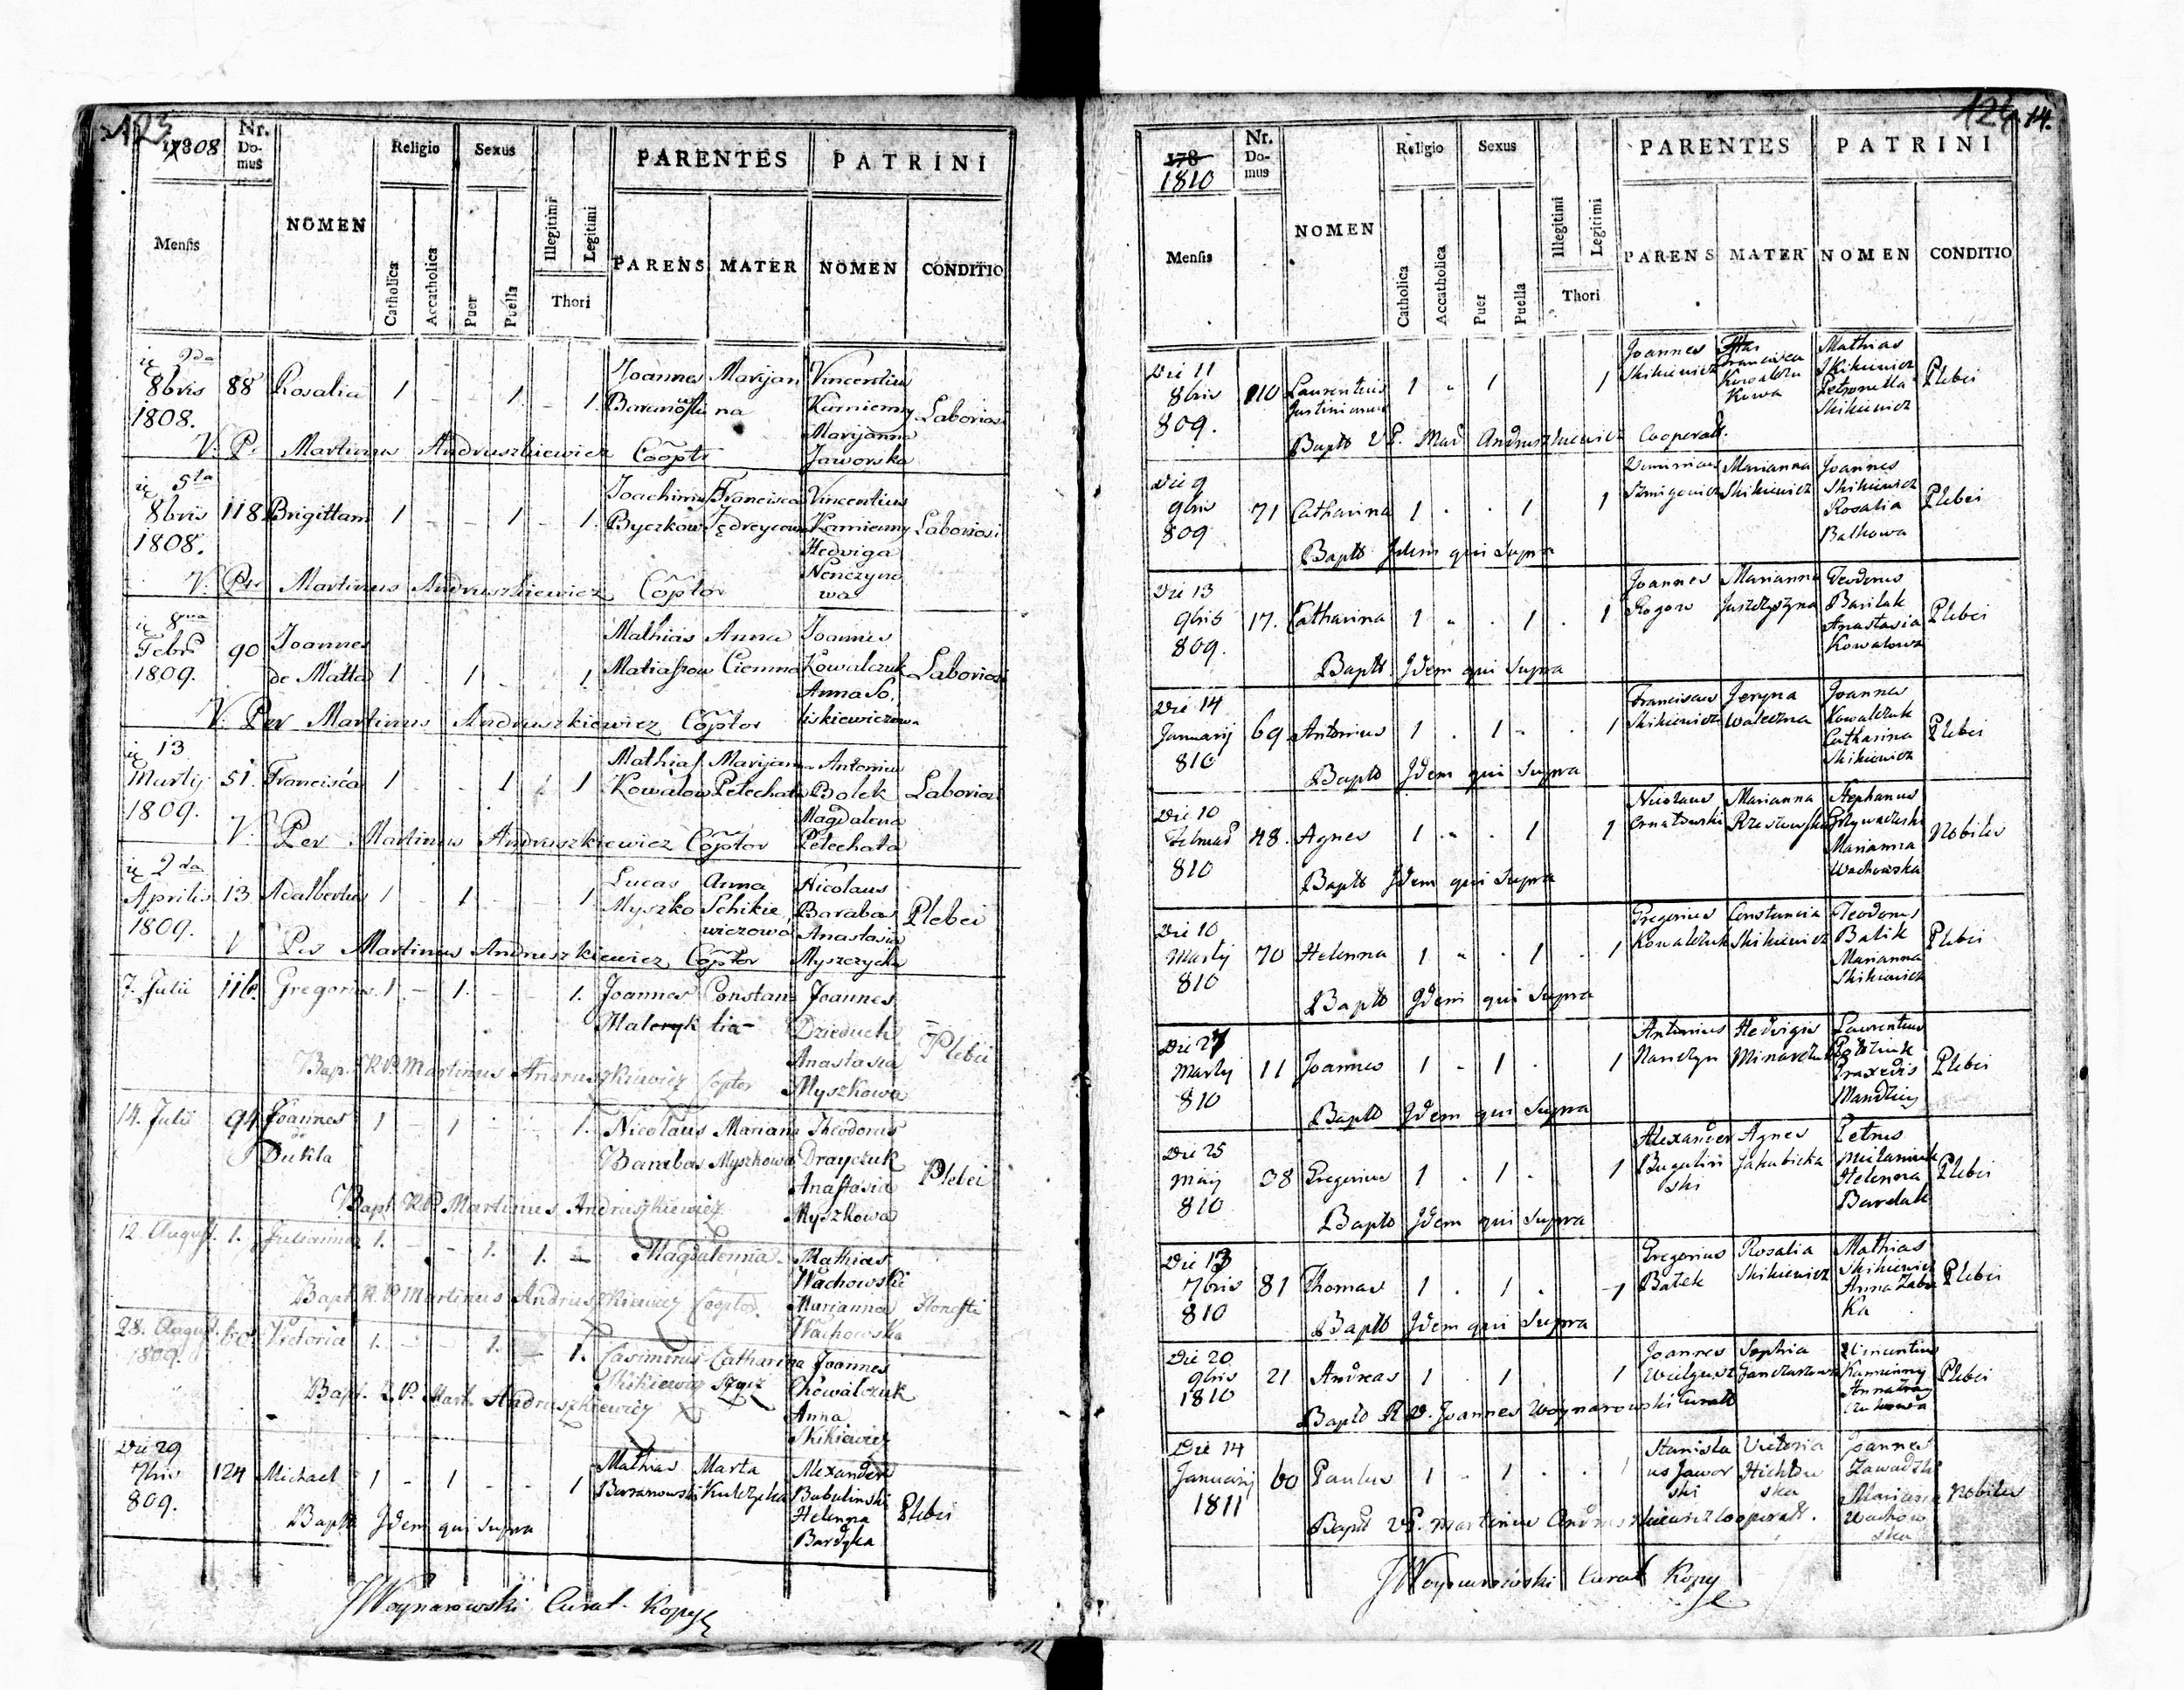 123
1808
Nr. Domus
NOMEN
Religio
Sexus
PARENTES
PATRINI
Mensis
Catholica
Accatholica
Puer
Puella
Illegitimi
Legitimi
Thori
PARENS
MATER
NOMEN
CONDITIO
2da 8bris 1808. 88 Rosalia 1 - - 1 - 1. Joannes Baranoski Marijanna Vincentius Kamienny Marijanna Jaworska Laboriosi
V. P. Martinus Andruszkiewicz Cooptr
5ta 8bris 1808. 118 Brigittam 1 - - 1 - 1. Joachim Byczkow Francisca Vincentius Kamienny Hedviga Nenczynowa Laboriosi
V. Pr. Martinus Andruszkiewicz Coptor
8va Febr 1809. 90 Joannes de Matta 1 - 1 - 1 Mathias Matiaszow Anna Ciemna Joannes Kowalczuk Anna So. Laboriosi
V. Per Martinus Andruszkiewicz Coptor
13 Martij 1809. 51. Francisca 1 - - 1 1 Mathias Kowalow Marijanna Pelechata Antonius Bolek Magdalena Pelechata Laboriosi
V. Per Martinus Andruszkiewicz Coptor
2da Aprilis 1809. 13 Adalbertus 1 - 1 - - 1 Lucas Myszko Anna Schikiewiczowa Nicolaus Baraba Anastasia Myszczycha Plebei
V Per Martinus Andruszkiewicz Coptor
7. Julii 116. Gregorius. 1 - 1. - - 1. Joannes Constantia Joannes Dzieduch Anastasia Myszkowa Plebei
Bap. R.P. Martinus Andruszkiewicz Coptor
14. Julii 94 Joannes de Dukla 1 - 1 - - 1. Nicolaus Barabas Mariana Myszkowa Theodorus Drayczuk Anastasia Myszkowa Plebei
Bapt. R.P. Martinus Andruszkiewicz
12. August. 1. Julianna 1. - - 1. 1. - Magdalenna Mathias Wachowski Marianna Wachowska Honesti
Bapt. R. P. Martinus Andruszkiewicz Coptor.
28. August. 1809. Victoria 1. - - 1. - 1. Casimirus Skikiewicz Catharina Joannes Chowalczuk Anna Skikiewicz
Bapt. R. P. Mart. Andruszkiewicz
Die 29 7bris 809. 124 Michael 1 - 1 1 Mathias Baranowski Marta Alexander Bubulinski Helenna Bardyka Plebei
Bapto Idem qui supra
JWoynarowski Curat. Kopy

124 14.
178
1810
Nr. Domus
NOMEN
Religio
Sexus
PARENTES
PATRINI
Mensis
Catholica
Accatholica
Puer
Puella
Illegitimi
Legitimi
Thori
PARENS
MATER
NOMEN
CONDITIO
Die 11 8bris 809. 110 Laurentius Justinianus 1 - 1 1 Joannes Skikiewicz Francisca Mathias Skikiewicz Petronella Skikiewicz Plebei
Bapto VP. Mar Andruszkiewicz Cooperatt.
Die 9 9bris 809 71 Catharina 1 . . 1 1 Marianna Skikiewicz Joannes Skikiewicz Rosalia Balkowa Plebei
Bapto Idem qui Supra
Die 13 9bris 809. 17. Catharina 1 - . 1 . 1 Joannes Rogow Marianna Juszczyszyna Teodorus Basilak Anastasia Kowalowa Plebei
Bapto Idem qui Supra
Die 14 Januarij 810 69 Antonius 1 . 1 - . 1 Franciscus Skikiewicz Waleczna Joannes Kowalczuk Catharina Skikiewicz Plebei
Bapto Idem qui Supra
Die 10 Februar 810 48. Agnes 1 - . 1 1 Nicolaus Ornatowski Marianna Stephanus Marianna Wachowska Nobiles
Bapto Idem qui Supra
Die 10 Martij 810 70 Helenna 1 - . 1 . 1 Gregorius Kowalczuk Constancia Skikiewicz Teodorus Batik Marianna Skikiewicz Plebei
Bapto Idem qui Supra
Die 27 Martij 810 11 Joannes 1 - 1 . 1 Antonius Nanczyn Hedvigis Laurentius Praxedis Plebei
Bapto Idem qui Supra
Die 25 Maij 810 38 Gregorius 1 . 1 . 1 Alexander Bugulinski Agnes Jakubicka Petrus Helenna Bardak Plebei
Bapto Idem qui Supra
Die 13 7bris 810 81 Thomas 1 . 1 . 1 Gregorius Batek Rosalia Skikiewicz Mathias Skikiewicz Anna Plebei
Bapto Idem qui Supra
Die 20 9bris 1810 21 Andreas 1 . 1 . 1 Joannes Sophia Vincentius Kamienny Anna Plebei
Bapto R V. Joannes Woynarowski Curatt
Die 14 Januarij 1811 60 Paulus 1 - 1 . . 1 Stanislaus Jaworski Victoria Joannes Zawadzki Marianna Wachowska Nobiles
Bapto VP. Martinus Andruszkiewicz Cooperatt.
JWoynarowski Curat Kopy